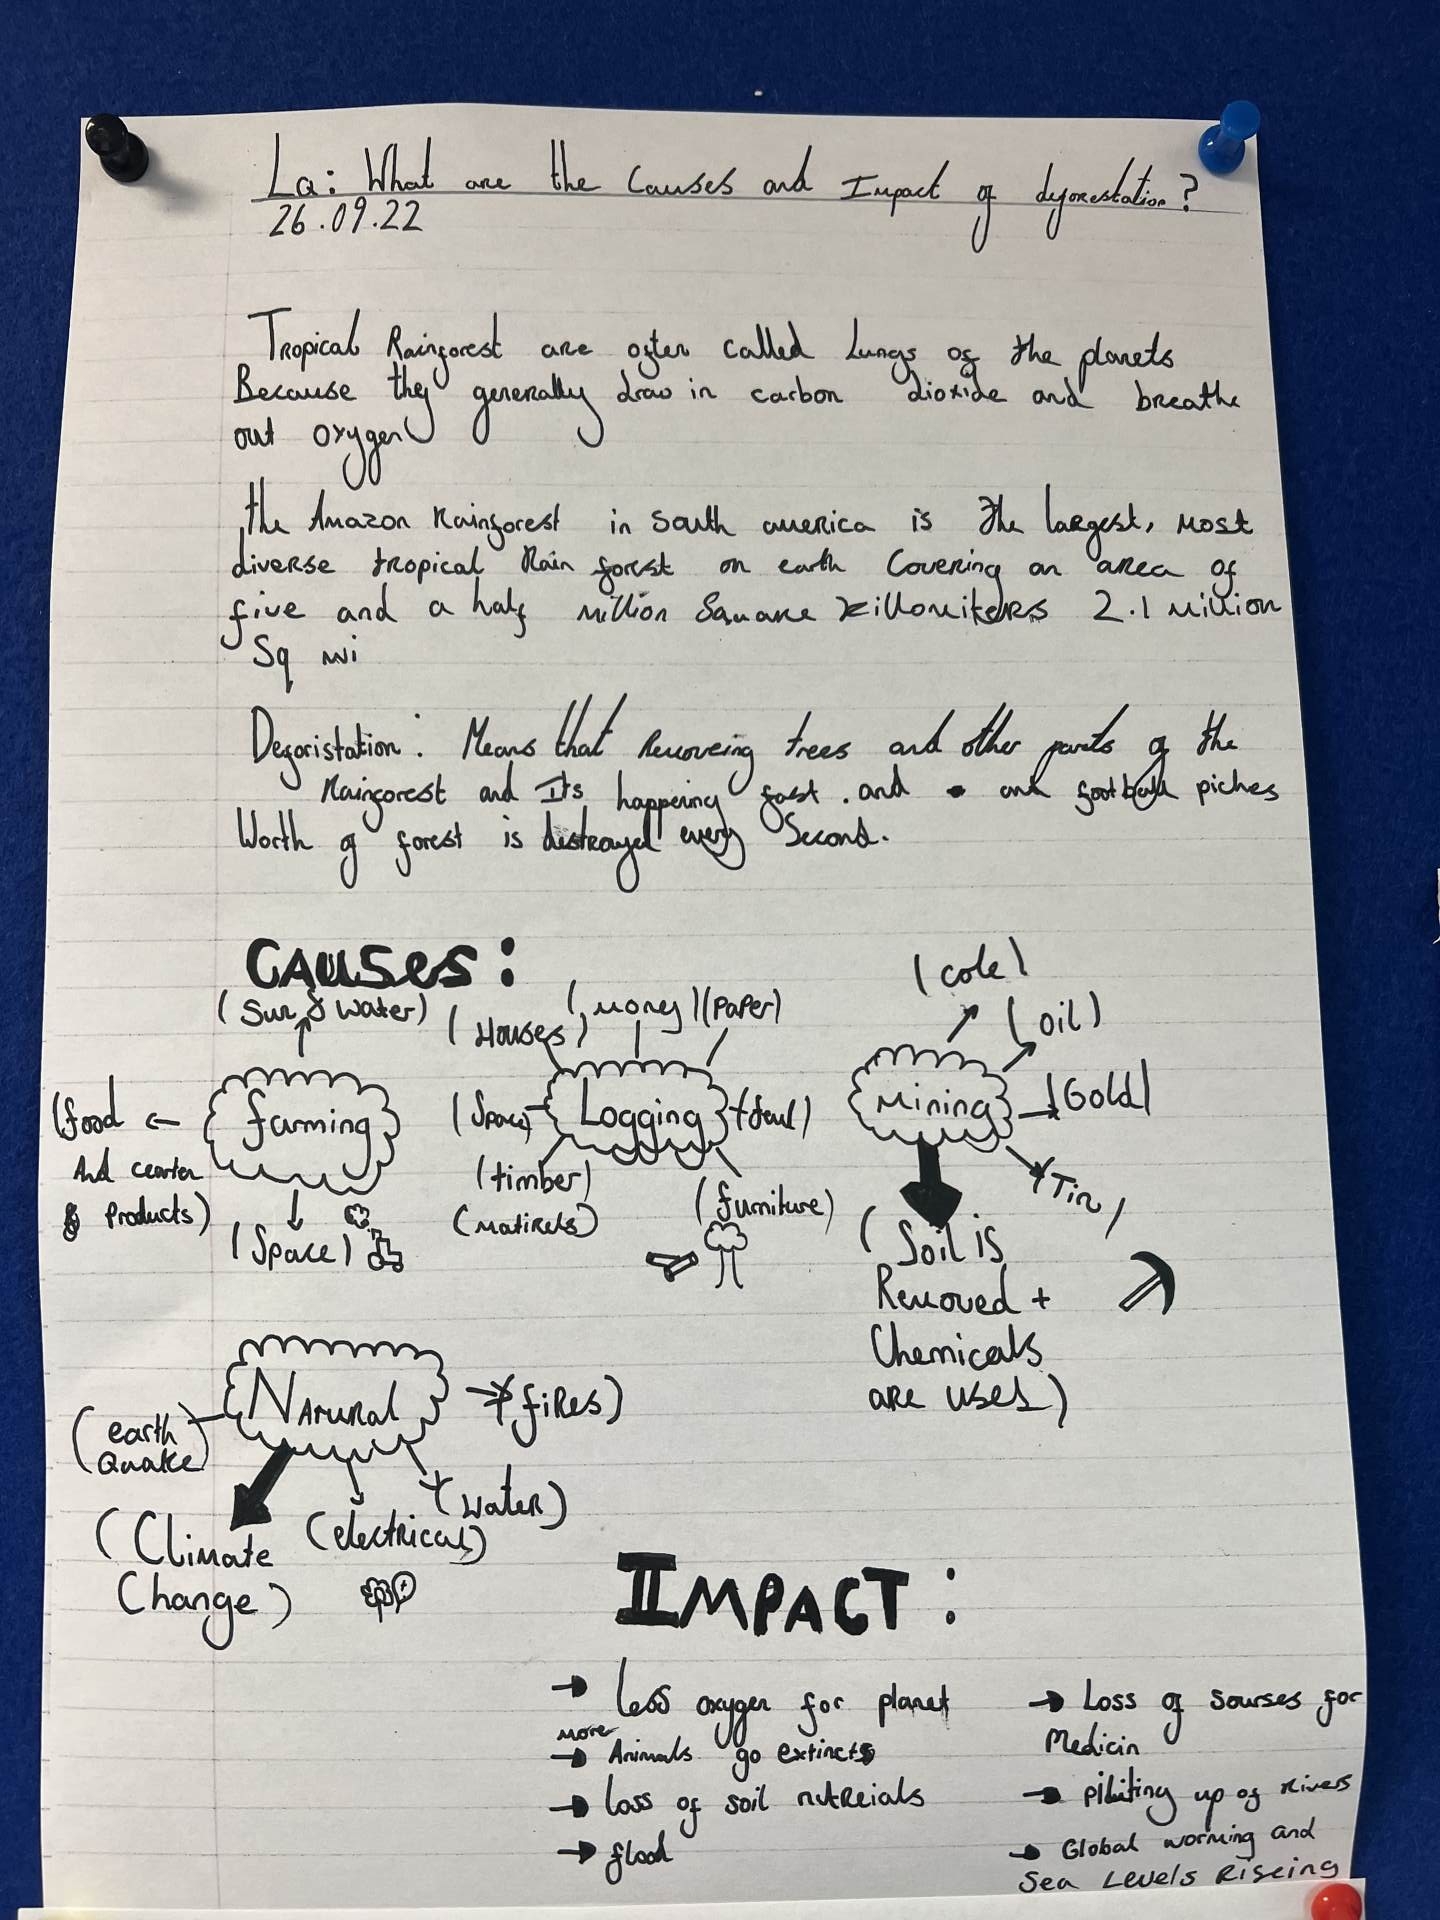 LQ: What are the Causes and Impact of deforestation?
26.09.22
Tropical Rainforest are often called Lungs of the planets
Because they generally draw in carbon dioxide and breathe
out oxygen
the Amazon Rainforest in south america is the largest, most
diverse tropical Rain forest on earth Covering an area of
five and a half million Square killomiters 2.1 million
Sq mi
Deforistation: Means that Removeing trees and other parts of the
Rainforest and Its happening fast. and football piches
Worth of forest is destroyed every Second.
CAUSES:
(Sun & Water)
(Houses)
(money) (Paper)
(cole)
(oil)
(food
farming
(Space)
Logging
Mining
(Gold)
And
products)
(Space)
(timber)
(furniture)
(Tin)
(Soil is
Removed +
Chemicals
are uses)
Natural
(fires)
(earth
Quake)
(water)
(Climate
Change)
(electrical)
IMPACT:
→ less oxygen for planet
more
→ Animals go extincts
→ loss of soil nutreials
→ flood
→ Loss of sourses for
Medicin
up of Rivers
→ Global worming and
Sea Levels Riseing